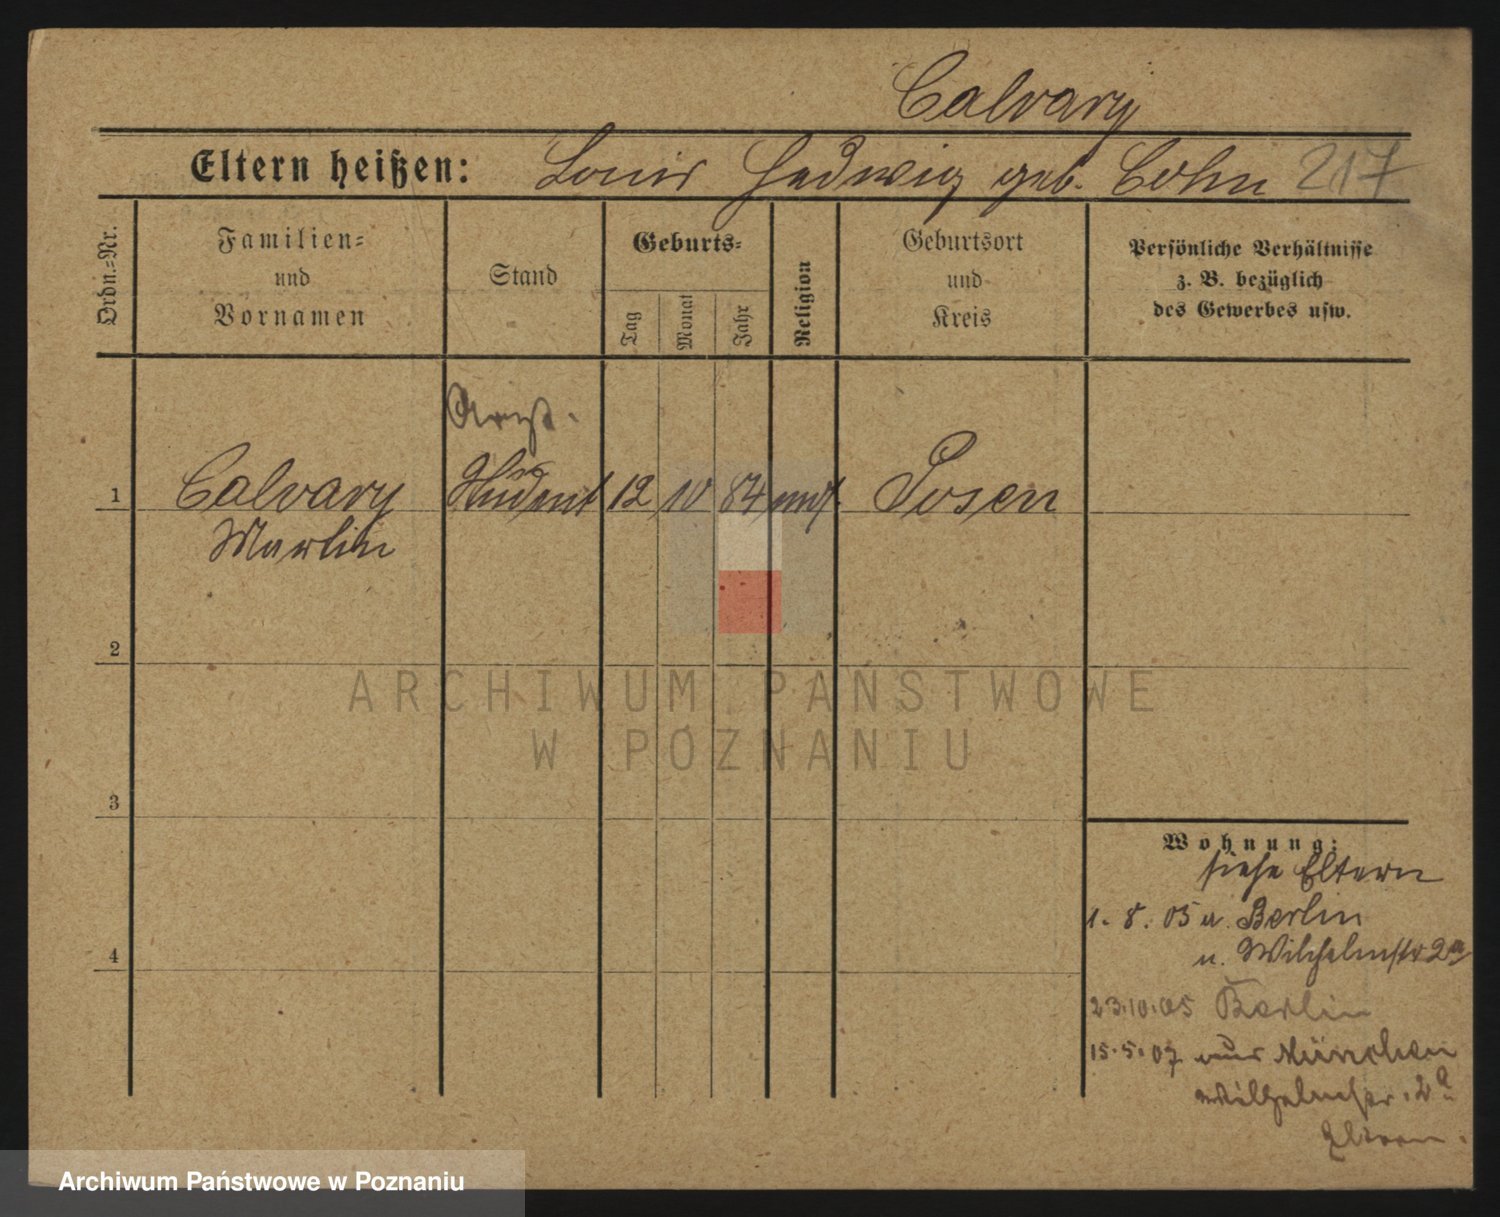 Calvary
Eltern heißen: Louis Hedwig geb. Cohn 217
Ordn.-Nr.
Familien-
und
Vornamen
Stand
Geburts-
Tag
Monat
Jahr
Religion
Geburtsort
und
Kreis
Persönliche Verhältnisse
z. B. bezüglich
des Gewerbes usw.
Arzt.
1 Calvary Student 12 10 84 mos. Posen
Martin
2
3
4
Wohnung:
siehe Eltern
1. 8. 05 a. Berlin
n. Wilhelmstr 2a
23.10.05 Berlin
15.5.07 aus München
Wilhelmstr. 2a
Eltern.
ARCHIWUM PAŃSTWOWE
W POZNANIU
Archiwum Państwowe w Poznaniu